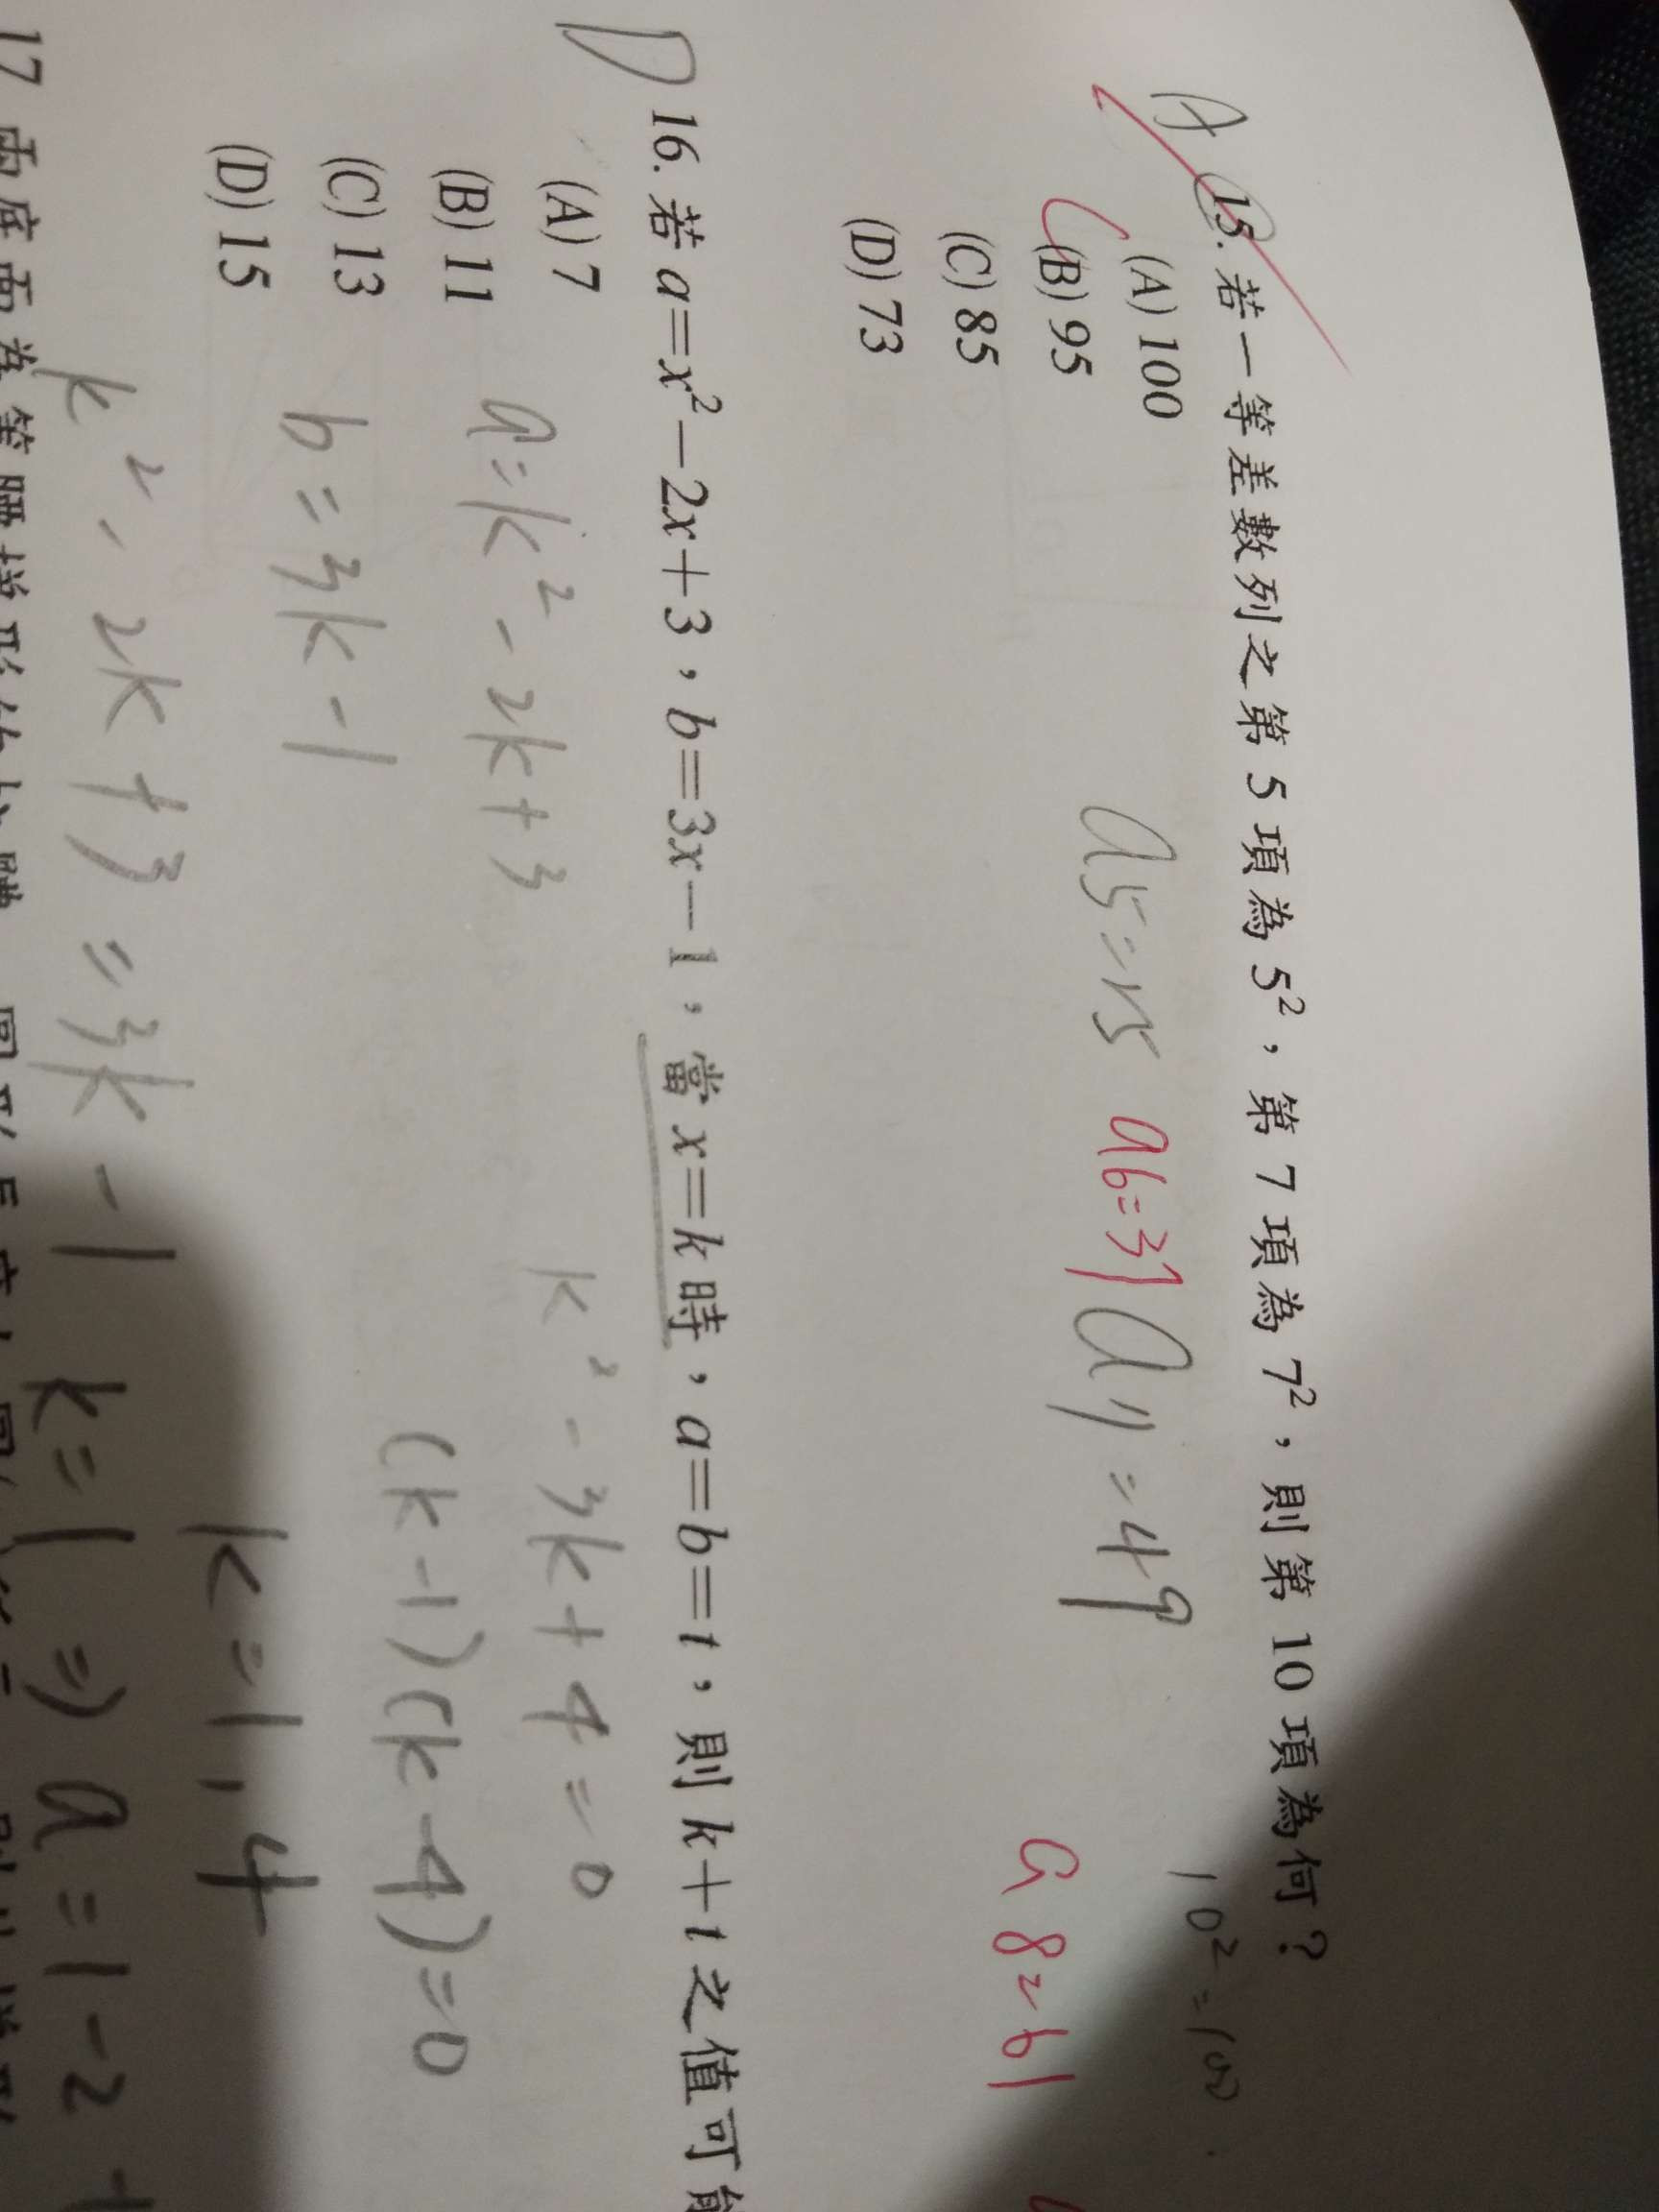 A 15. 若一等差數列之第 5 項為 5²，第 7 項為 7²，則第 10 項為何？
10²=100
(A) 100
(B) 95
(C) 85
(D) 73
a5=25 a6=37 a7=49
a8=61
D 16. 若 a=x²-2x+3，b=3x-1，當 x=k 時，a=b=t，則 k+t 之值可能
(A) 7
(B) 11
(C) 13
(D) 15
a=k²-2k+3
b=3k-1
k²-2k+3=3k-1
k²-3k+4=0
(k-1)(k-4)=0
k=1,4
k=1 => a=1-2+
17 兩底面為等腰梯形的